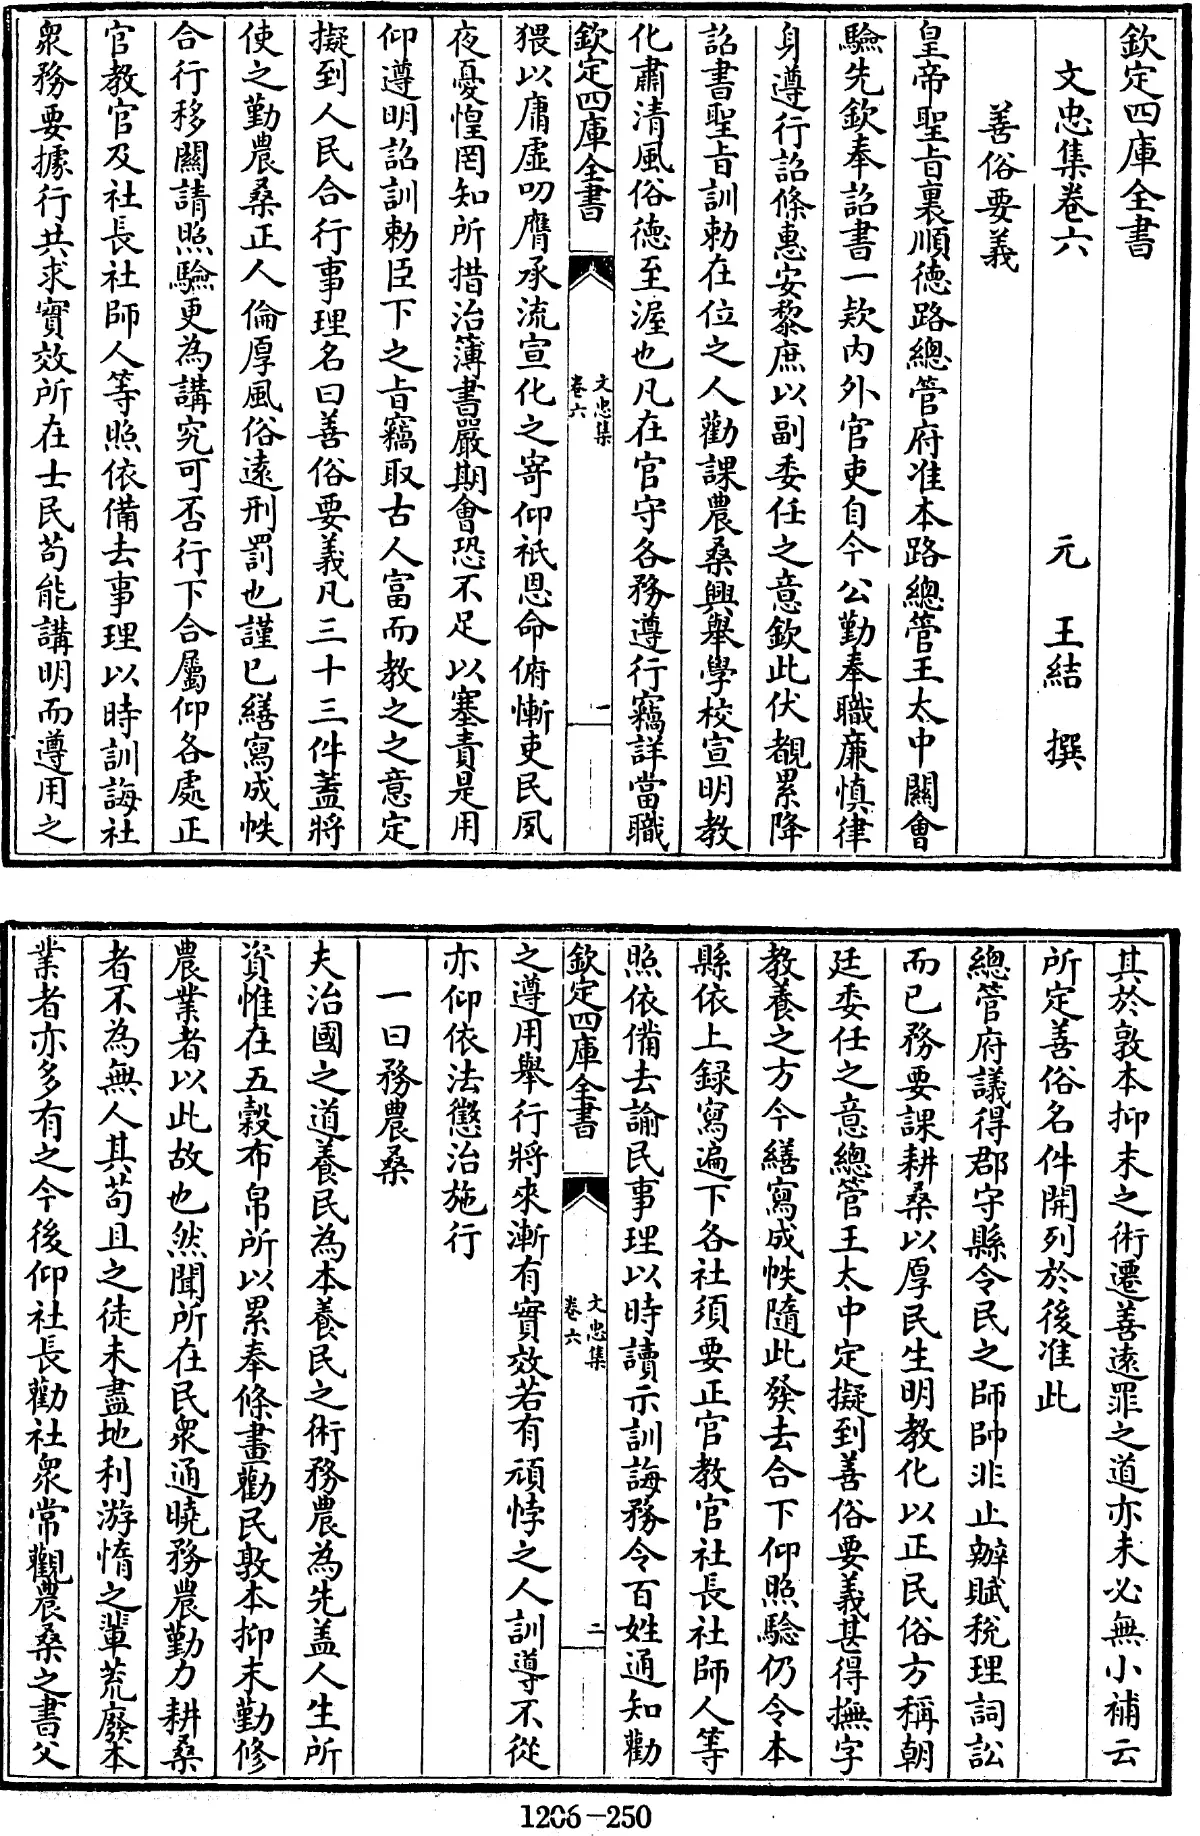 欽定四庫全書
文忠集卷六
元 王結 撰
善俗要義
皇帝聖旨裏順徳路總管府准本路總管王太中關會
驗先欽奉詔書一款内外官吏自今公勤奉職廉慎律
身遵行詔條惠安黎庶以副委任之意欽此伏覩累降
詔書聖旨訓勅在位之人勸課農桑興舉學校宣明教
化肅清風俗德至渥也凡在官守各務遵行竊詳當職
欽定四庫全書
文忠集
卷六
一
猥以庸虛叨膺承流宣化之寄仰祇恩命俯慚吏民夙
夜憂惶罔知所措治簿書嚴期會恐不足以塞責是用
仰遵明詔訓勅臣下之㫖竊取古人富而教之之意定
擬到人民合行事理名曰善俗要義凡三十三件蓋將
使之勤農桑正人倫厚風俗遠刑罰也謹已繕寫成帙
合行移關請照驗更為講究可否行下合屬仰各處正
官教官及社長社師人等照依備去事理以時訓誨社
衆務要據行共求實效所在士民苟能講明而遵用之
其於敦本抑末之術遷善遠罪之道亦未必無小補云
所定善俗名件開列於後准此
總管府議得郡守縣令民之師帥非止辦賦稅理詞訟
而已務要課耕桑以厚民生明教化以正民俗方稱朝
廷委任之意總管王太中定擬到善俗要義甚得撫字
教養之方今繕寫成帙隨此發去合下仰照驗仍令本
縣依上録寫遍下各社須要正官教官社長社師人等
照依備去諭民事理以時讀示訓誨務令百姓通知勸
欽定四庫全書
文忠集
卷六
二
之遵用舉行將來漸有實效若有頑悖之人訓導不從
亦仰依法懲治施行
一曰務農桑
夫治國之道養民為本養民之術務農為先蓋人生所
資惟在五穀布帛所以累奉條畫勸民敦本抑末勤修
農業者以此故也然聞所在民衆通曉務農勤力耕桑
者不為無人其苟且之徒未盡地利游惰之輩荒廢本
業者亦多有之今後仰社長勸社衆常觀農桑之書父
1206-250